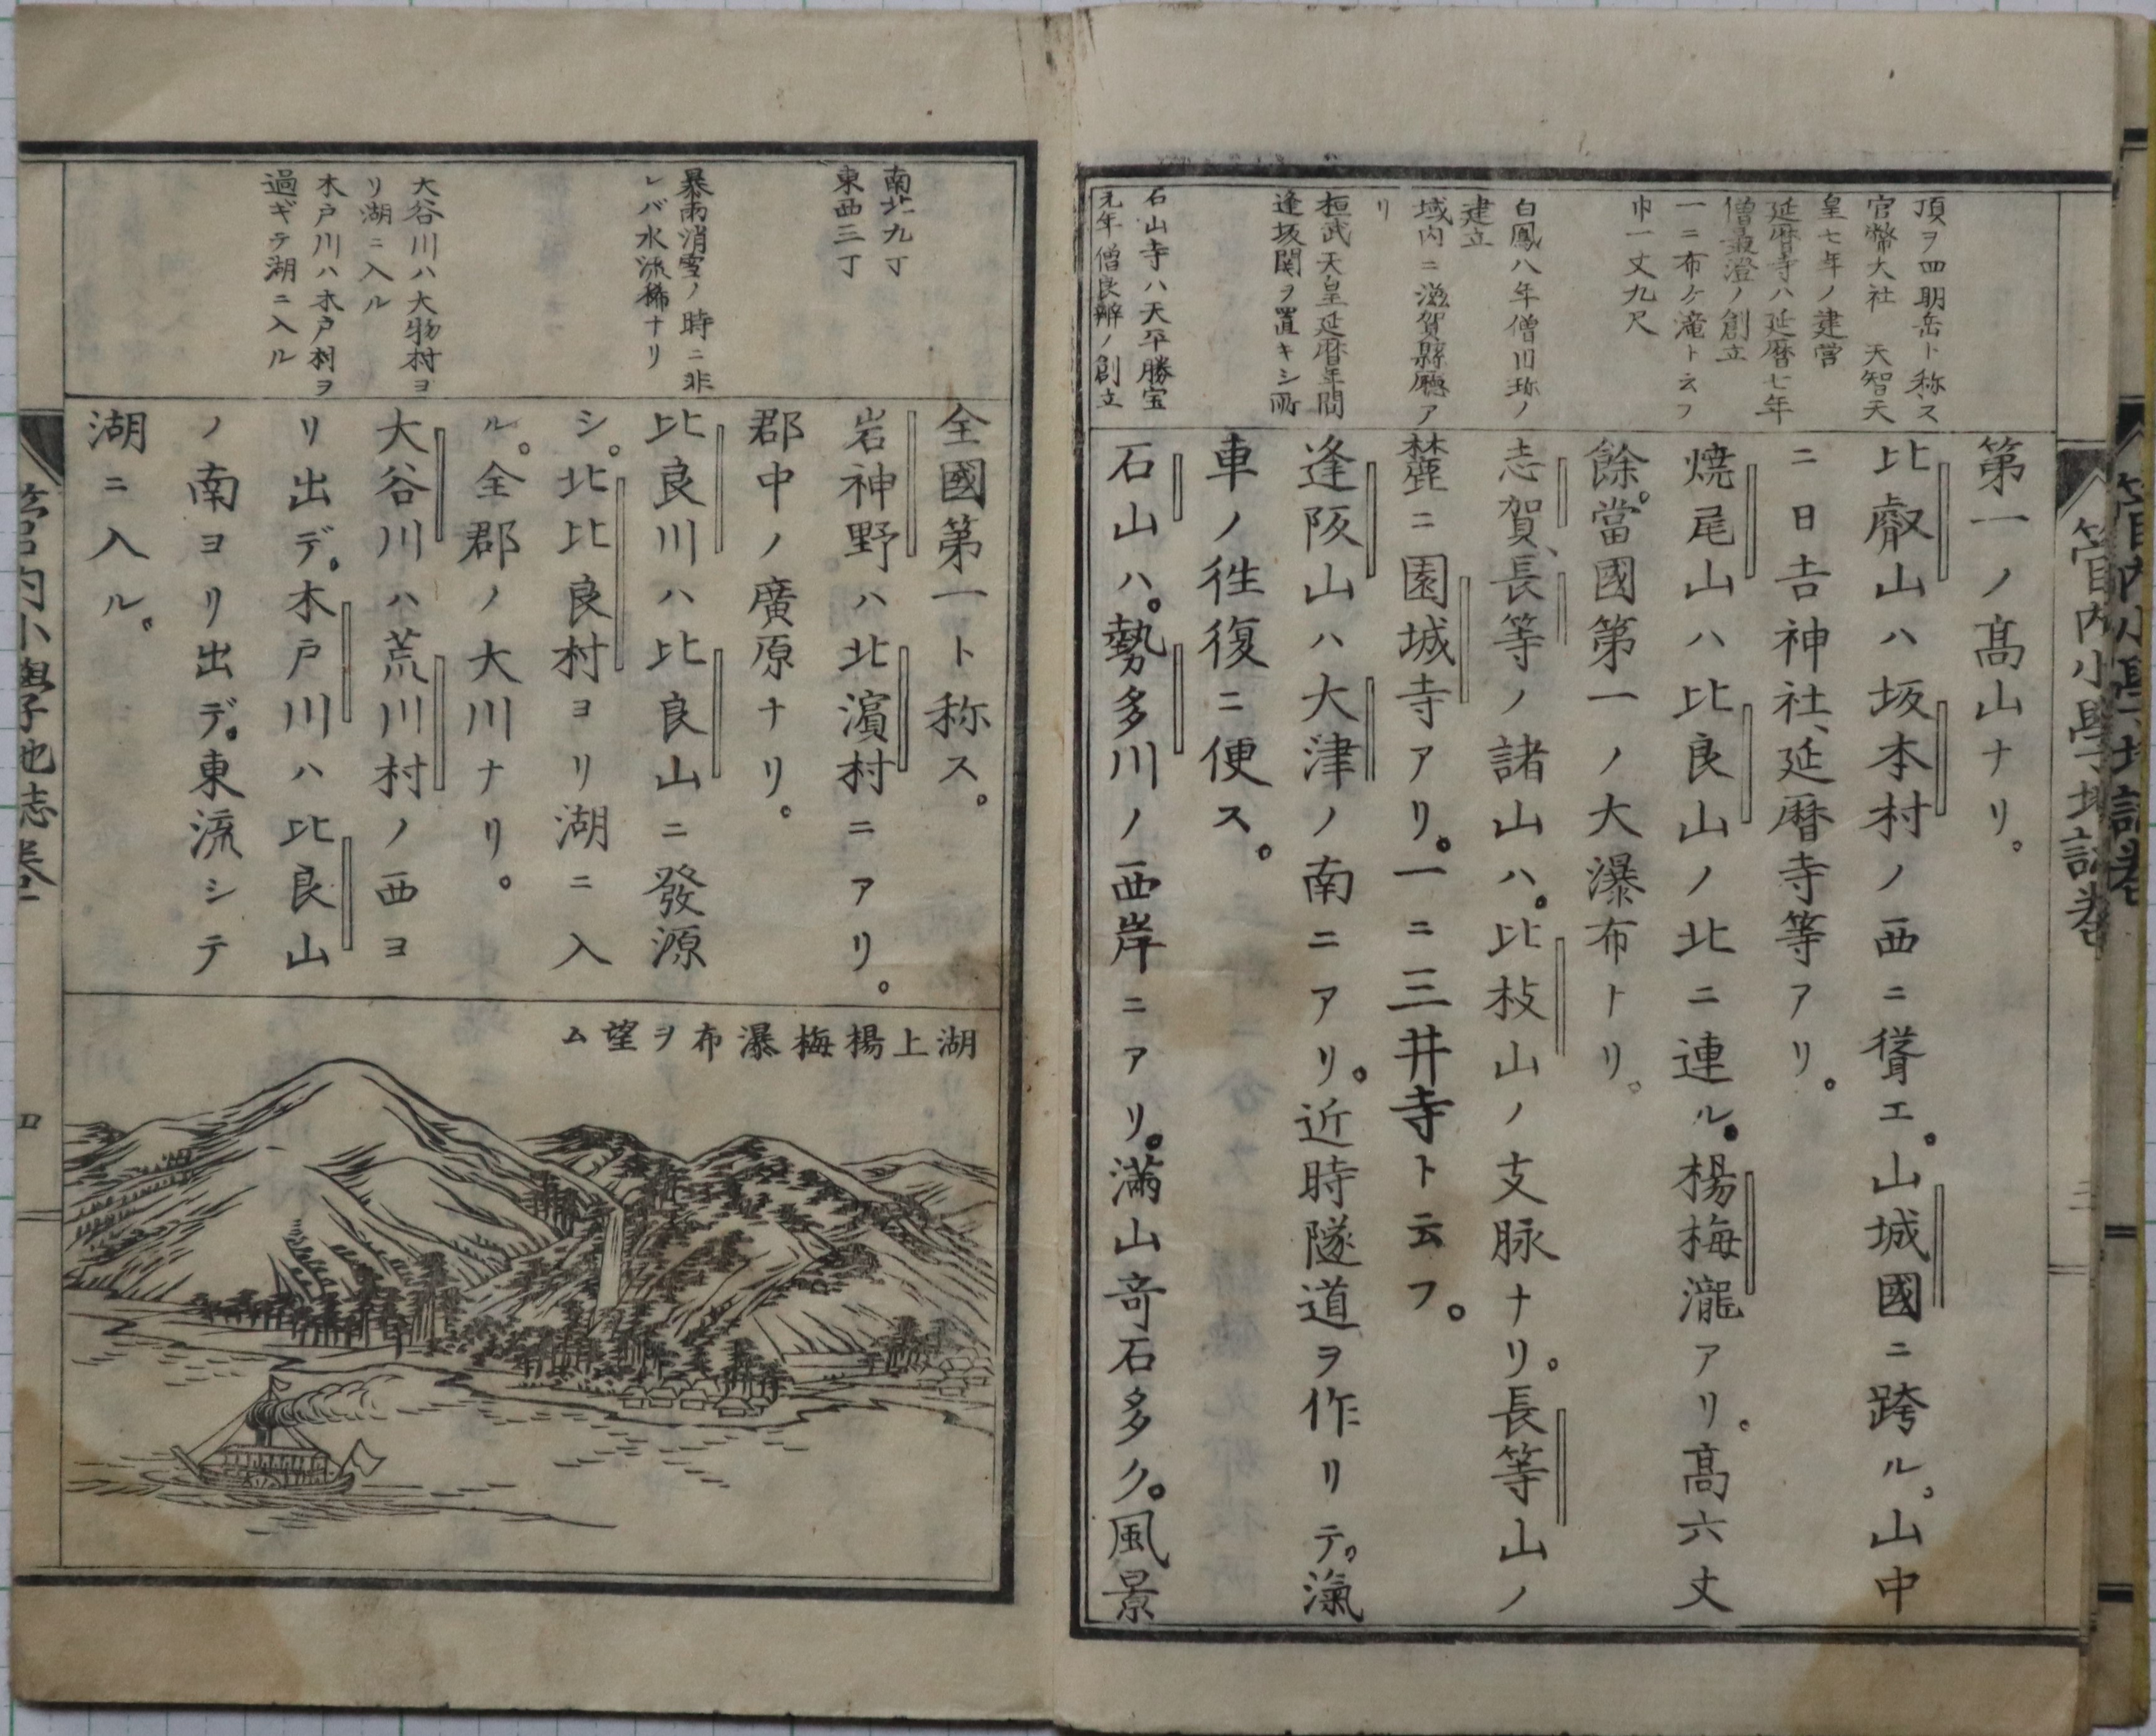 管内小學地誌卷
三
頂ヲ四明岳ト称ス
官幣大社 天智天
皇七年ノ建営
延暦寺ハ延暦七年
僧最澄ノ創立
一ニ布ケ滝ト云フ
巾一丈九尺
白鳳八年僧旧珎ノ
建立
域内ニ滋賀縣廳ア
リ
桓武天皇延暦年間
逢坂関ヲ置キシ所
石山寺ハ天平勝宝
元年僧良辨ノ創立
第一ノ髙山ナリ。
比叡山ハ坂本村ノ西ニ聳エ。山城國ニ跨ル。山中
ニ日𠮷神社、延暦寺等アリ。
焼尾山ハ比良山ノ北ニ連ル。楊梅瀧アリ。髙六丈
餘。當國第一ノ大瀑布トリ。
志賀、長等ノ諸山ハ。比枝山ノ支脉ナリ。長等山ノ
麓ニ園城寺アリ。一ニ三井寺ト云フ。
逢阪山ハ大津ノ南ニアリ。近時隧道ヲ作リテ。滊
車ノ徃復ニ便ス。
石山ハ。勢多川ノ西岸ニアリ。滿山奇石多ク。風景
南北九丁
東西三丁
暴雨消雪ノ時ニ非
レバ水流稀ナリ
大谷川ハ大物村ヨ
リ湖ニ入ル
木戸川ハ木戸村ヲ
過ギテ湖ニ入ル
全國第一ト称ス。
岩神野ハ北濵村ニアリ。
郡中ノ廣原ナリ。
比良川ハ比良山ニ發源
シ。北比良村ヨリ湖ニ入
ル。全郡ノ大川ナリ。
大谷川ハ荒川村ノ西ヨ
リ出デ。木戸川ハ比良山
ノ南ヨリ出デ。東流シテ
湖ニ入ル。
湖上楊梅瀑布ヲ望ム
管内小學地志卷上
四